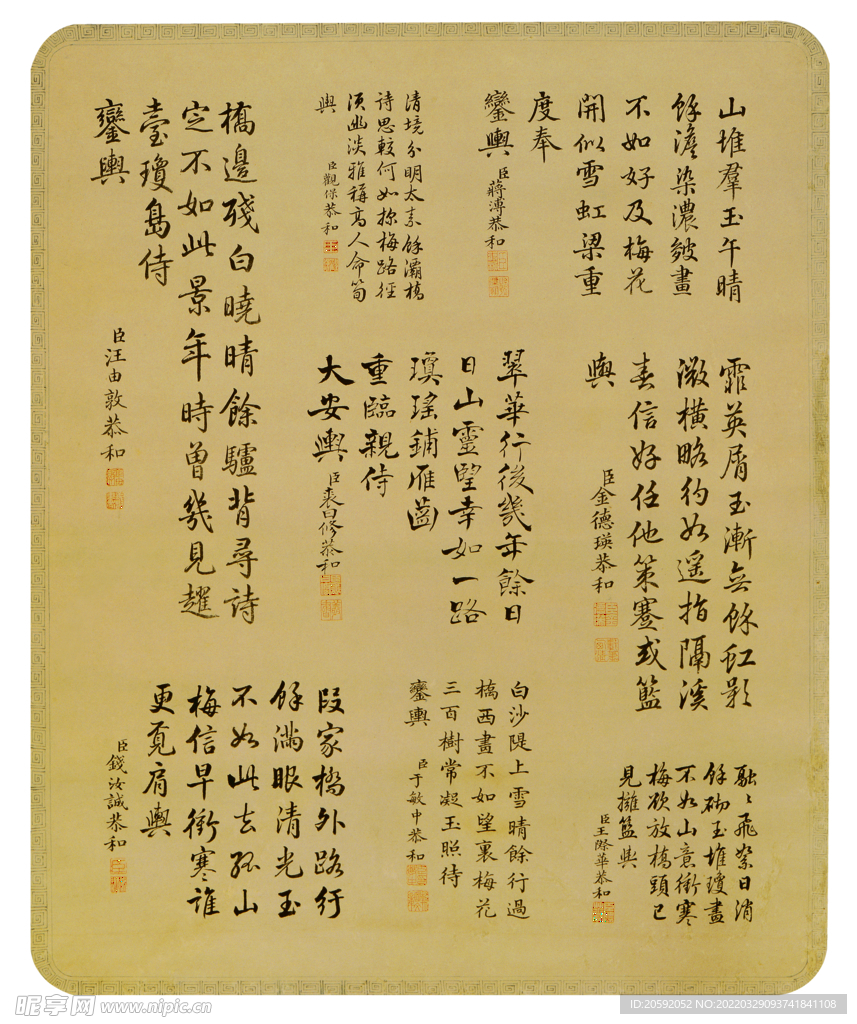 山堆羣玉午晴
餘澹染濃皴畫
不如好及梅花
開似雪虹梁重
度奉
鑾輿
臣蔣溥恭和
清境分明太素餘灞橋
詩思較何如探梅路徑
須幽淡雅稱高人命筍
輿
臣觀保恭和
橋邊殘白曉晴餘驢背尋詩
定不如此景年時曾幾見趯
臺瓊島侍
鑾輿
臣汪由敦恭和
霏英屑玉漸無餘虹影
微橫略彴如遙指隔溪
春信好任他策蹇或籃
輿
臣金德瑛恭和
翠華行後幾年餘日
日山靈望幸如一路
瓊瑤鋪雁齒
重臨親侍
大安輿
臣裘曰修恭和
融〻飛絮日消
餘砌玉堆瓊畫
不如山意衝寒
梅欲放橋頭已
見擁籃輿
臣王際華恭和
白沙隄上雪晴餘行過
橋西畫不如望裏梅花
三百樹常凝玉照待
鑾輿
臣于敏中恭和
段家橋外路行
餘滿眼清光玉
不如此去孤山
梅信早衝寒誰
更覓肩輿
臣錢汝誠恭和
昵享网 www.nipic.cn
ID:20592052 NO:20220329093741841108